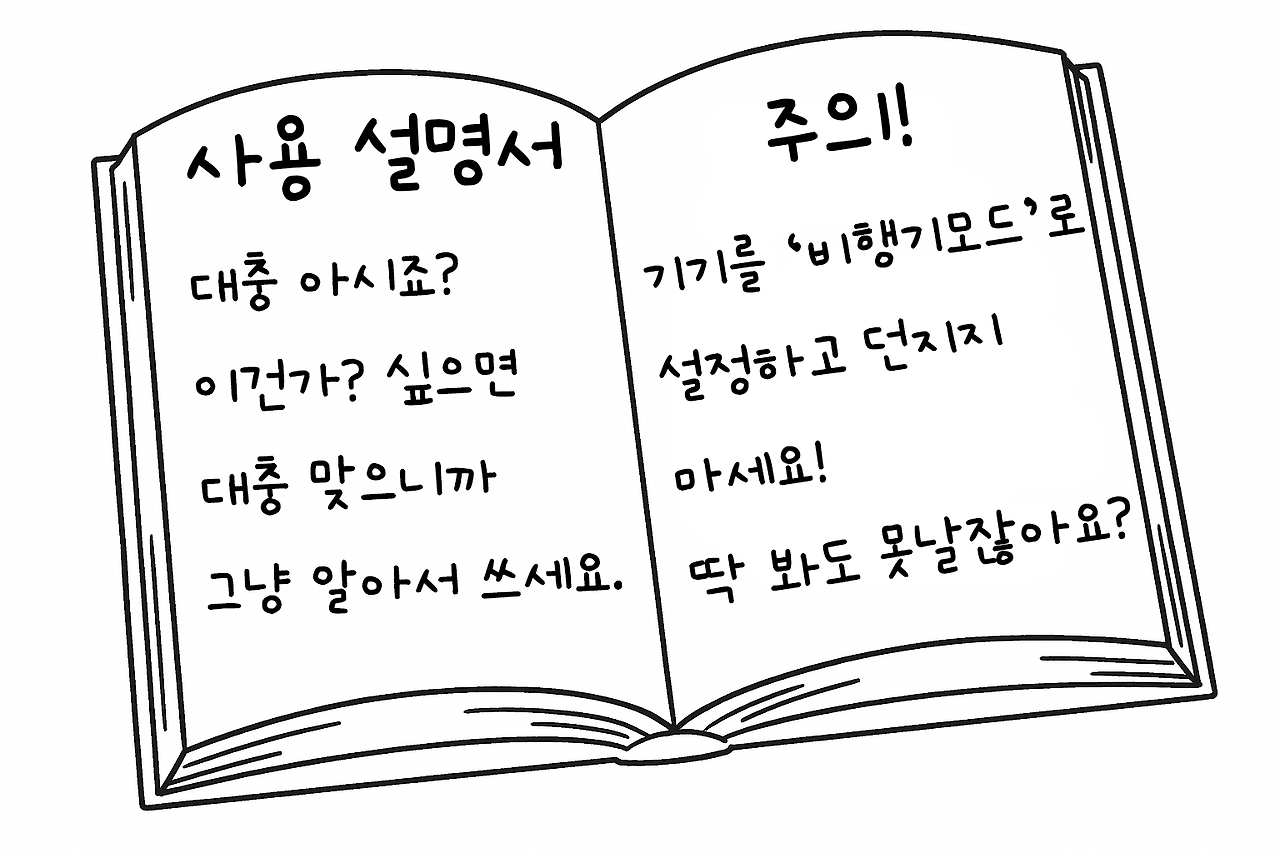 사용 설명서
대충 아시죠?
이건가? 싶으면
대충 맞으니까
그냥 알아서 쓰세요.
주의!
기기를 ‘비행기모드’로
설정하고 던지지
마세요!
딱 봐도 못날잖아요?